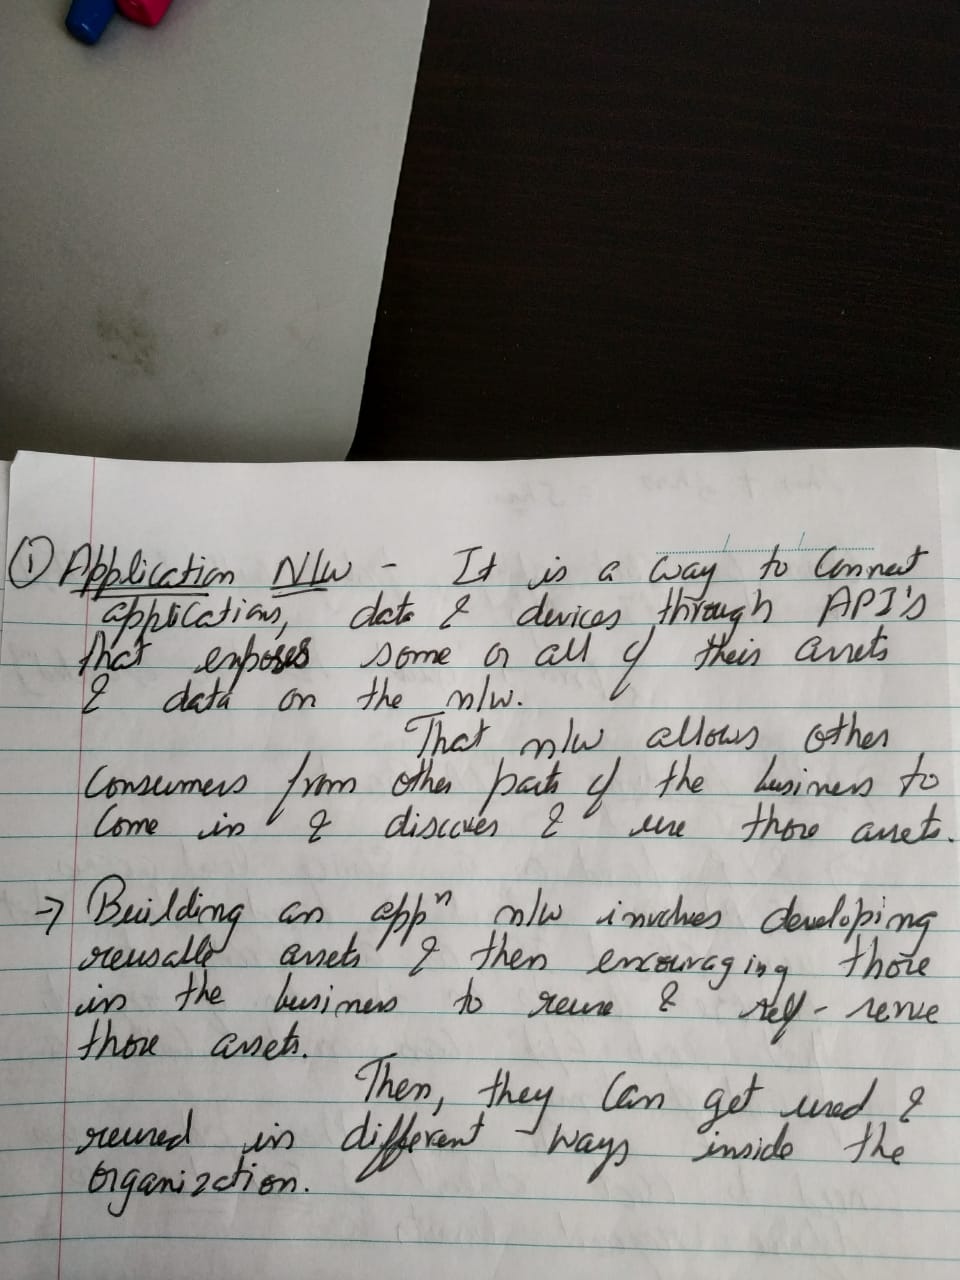 ① Application N/w - It is a way to Connect
applications, data & devices through API's
that exposes some or all of their assets
& data on the n/w.
That n/w allows other
Consumers from other parts of the business to
Come in & discover & use those assets.
→ Building an appⁿ n/w involves developing
reusable assets & then encouraging those
in the business to reuse & self-serve
those assets.
Then, they Can get used &
reused in different ways inside the
organization.